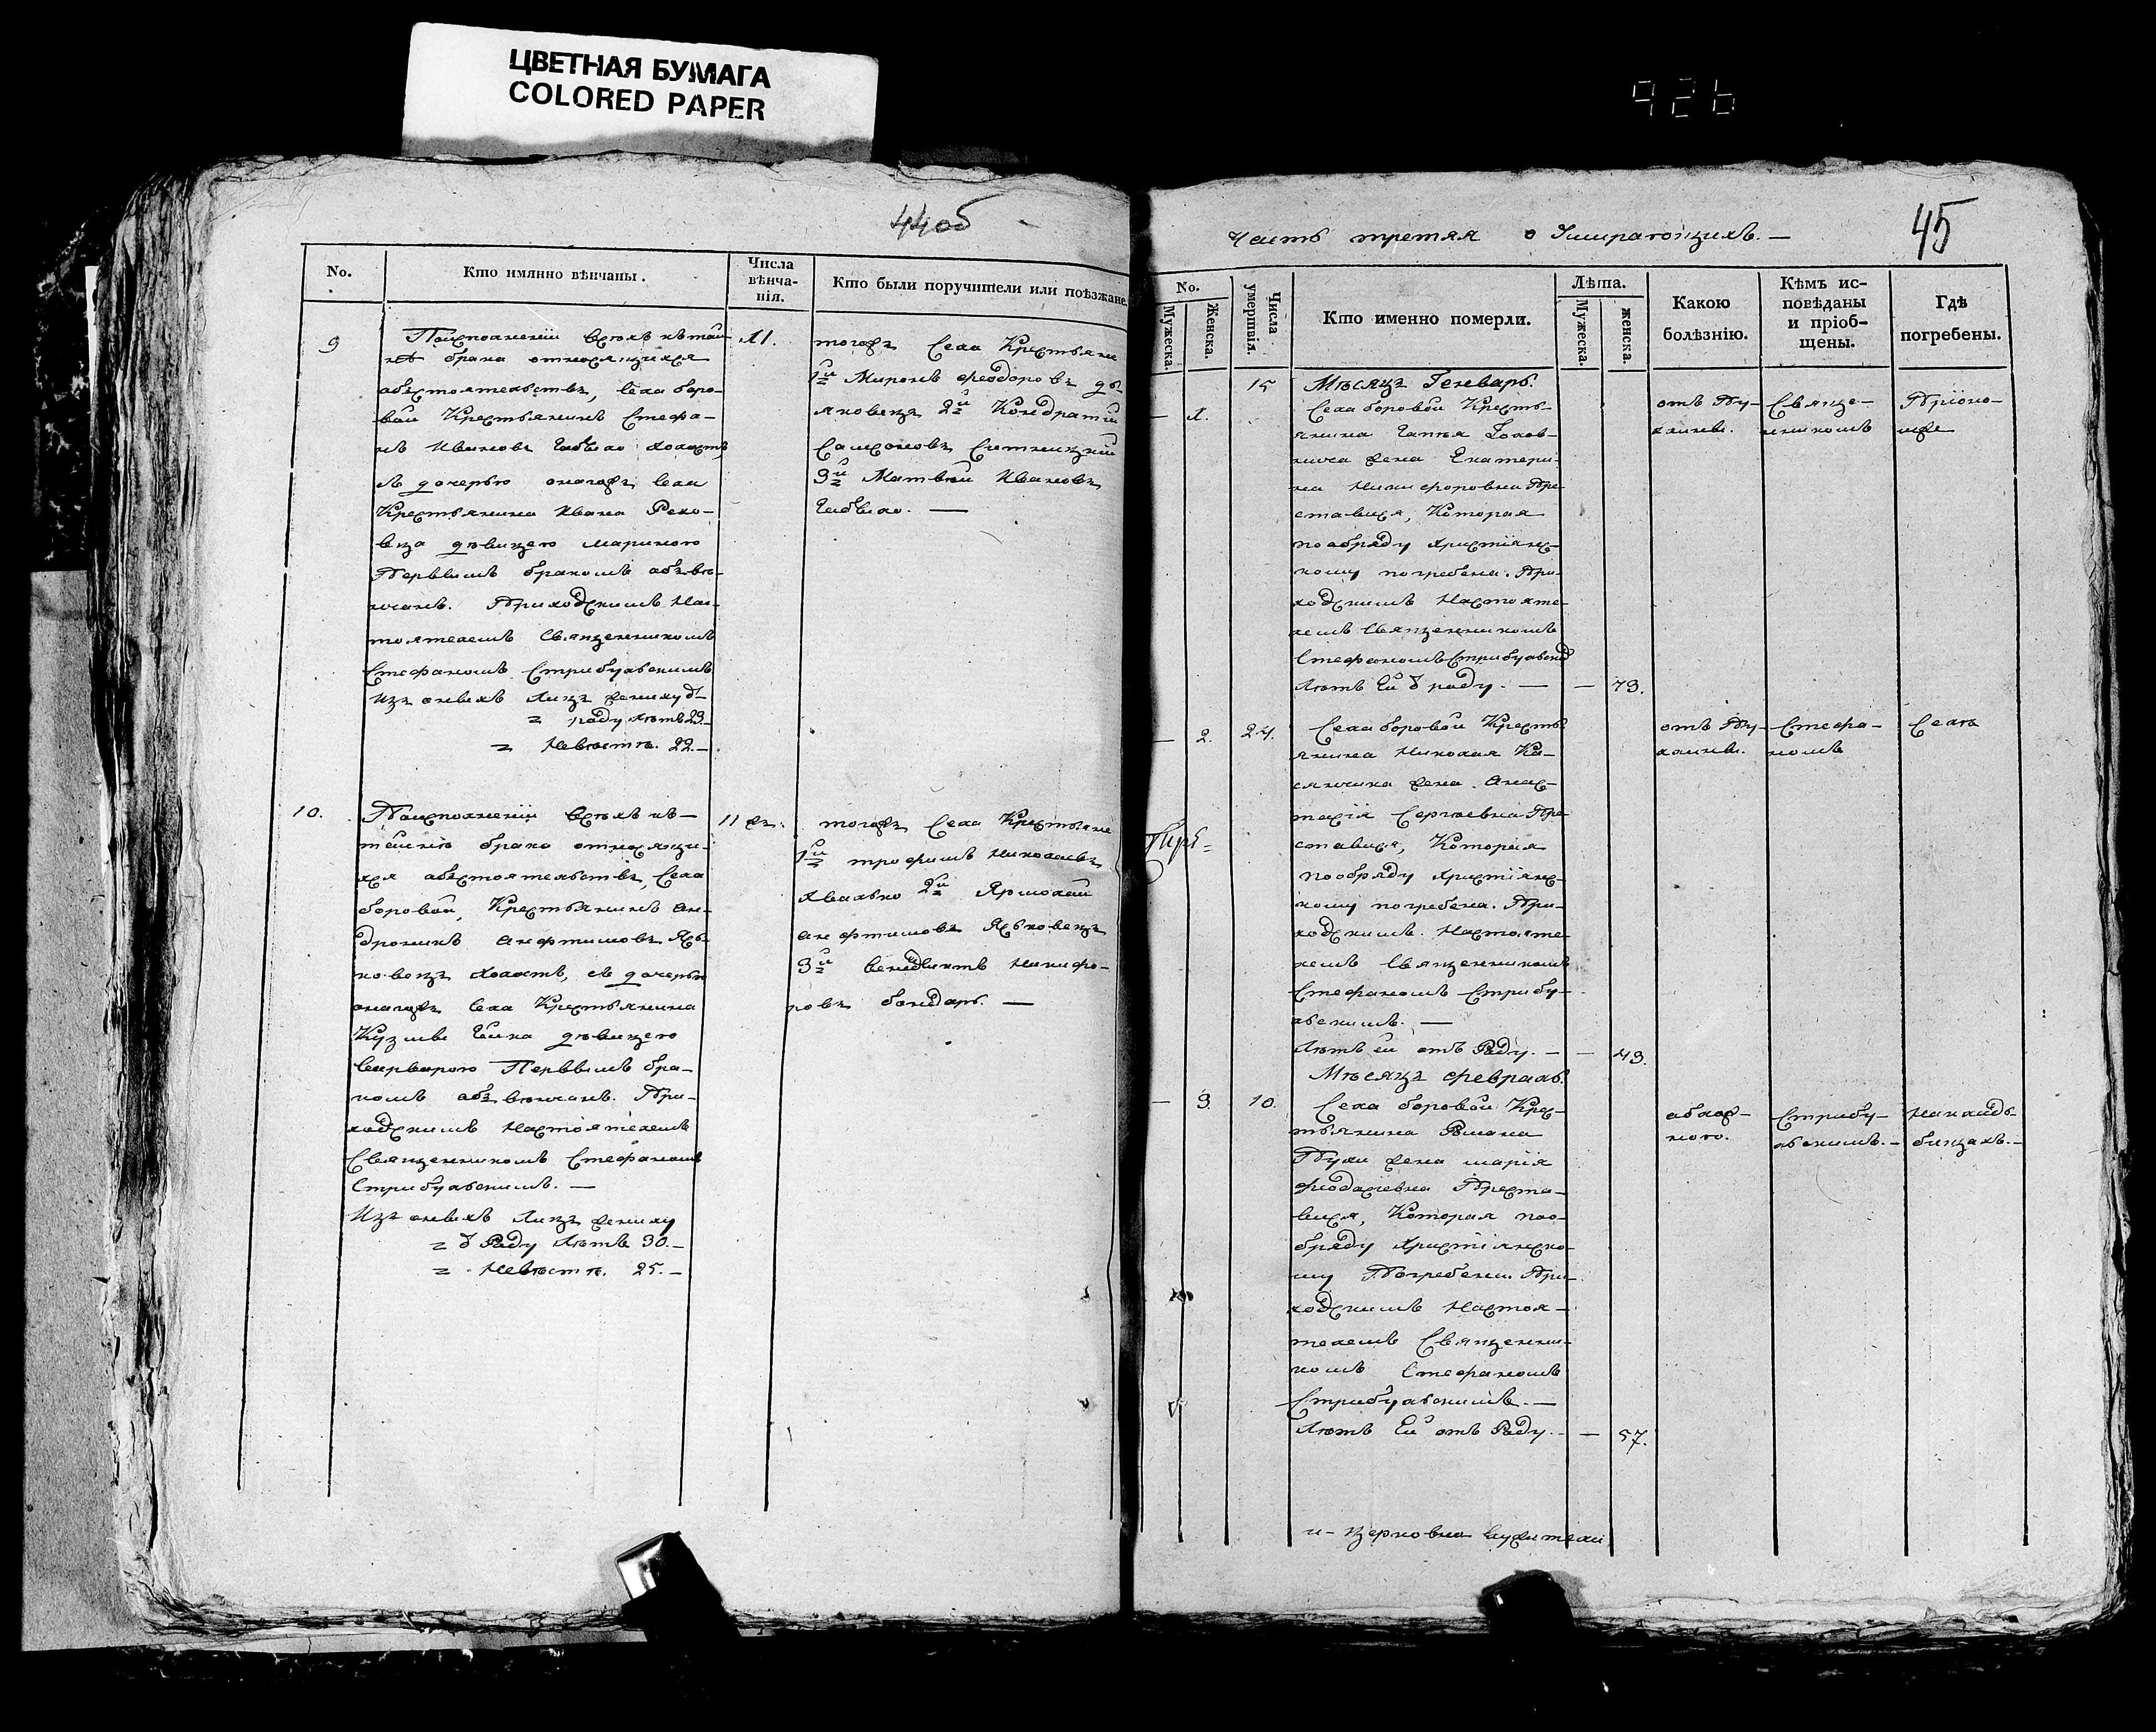 ЦВЕТНАЯ БУМАГА
COLORED PAPER
926
44об
No.
Кто имянно вѣнчаны.
Числа
вѣнча-
нія.
Кто были поручители или поѣзжане.
9
По исполненіи всѣхъ
брака относящихся
обстоятельствъ, Села боро-
вой Крестьянинъ Стефа-
нъ Ивановъ холостъ,
съ дочерью оногожъ Села
Крестьянина Ивана
вца дѣвицею Мариною
Первымъ бракомъ обвѣ-
нчанъ. Приходскимъ Нас-
тоятелемъ Священникомъ
Стефаномъ Стрибульскимъ
Изъ оныхъ лицъ жениху б-
= роду лѣтъ 23.
= Невѣстѣ. 22.—
11.
тогожъ Села Крестьяне
1й Миронъ Феодоровъ
яковецъ 2й Кондратій
Самсоновъ Ситницкій
3й Матвѣй Ивановъ
10.
По исполненіи всѣхъ къ—
брака относящи-
хся обстоятельствъ, Села
боровой, Крестьянинъ Ан-
дроникъ Анфтимовъ Ясь-
ковецъ холостъ, съ дочерью
оногожъ Села Крестьянина
Кузмы дѣвицею
Варварою Первымъ бра-
комъ обвѣнчанъ. При-
ходскимъ Настоятелемъ
Священникомъ Стефаномъ
Стрибульскимъ. —
Изъ оныхъ лицъ жениху
= б Роду лѣтъ 30.—
= Невѣстѣ. 25.—
11 жъ.
тогожъ Села Крестьяне
1й трофимъ Николаевъ
Хвалько 2й Ярмолай
анфтимовъ Яськовецъ
3й Венедиктъ Никифо-
ровъ бондарь. —
Часть третяя о Умирающихъ. —
45
No.
Мужеска.
Женска.
Числа
умершвія.
Кто именно померли.
Лѣта.
Мужеска.
женска.
Какою
болѣзнію.
Кѣмъ ис-
повѣданы
и пріоб-
щены.
Гдѣ
погребены.
15
Мѣсяцъ Генварь.
— 1.
Села боровой Кресть-
янина Голов-
жена Екатери-
на Никифоровна Пре-
ставися, Которая
по обряду христіанс-
кому погребена. При-
ходскимъ Настояте-
лемъ Священникомъ
Стефаномъ Стрибульскі
лѣтъ Ей б роду. — — 73.
отъ Пу-
хлины.
Священ-
никомъ
— 2. 24.
Села боровой Кресть-
янина Николая Ка-
жена Анас-
тасія Сергіевна Пре-
ставися, Которая
по обряду христіанс-
кому погребена. При-
ходскимъ Настояте-
лемъ Священникомъ
Стефаномъ Стрибу-
льскимъ. —
лѣтъ ей отъ Роду. — — 43.
отъ Пу-
хлины.
Стефа-
номъ
Селѣ
Мѣсяцъ февраль.
— 3. 10.
Села боровой Крес-
тьянина Романа
жена марія
Преста-
вися, Которая поо-
бряду христіанско-
му Погребена. При-
ходскимъ Настоя-
телемъ Священни-
комъ Стефаномъ
Стрибульскимъ. —
лѣтъ Ей отъ Роду. — — 57.
Стрибу-
льскимъ. —
На кладь-
бищахъ. —